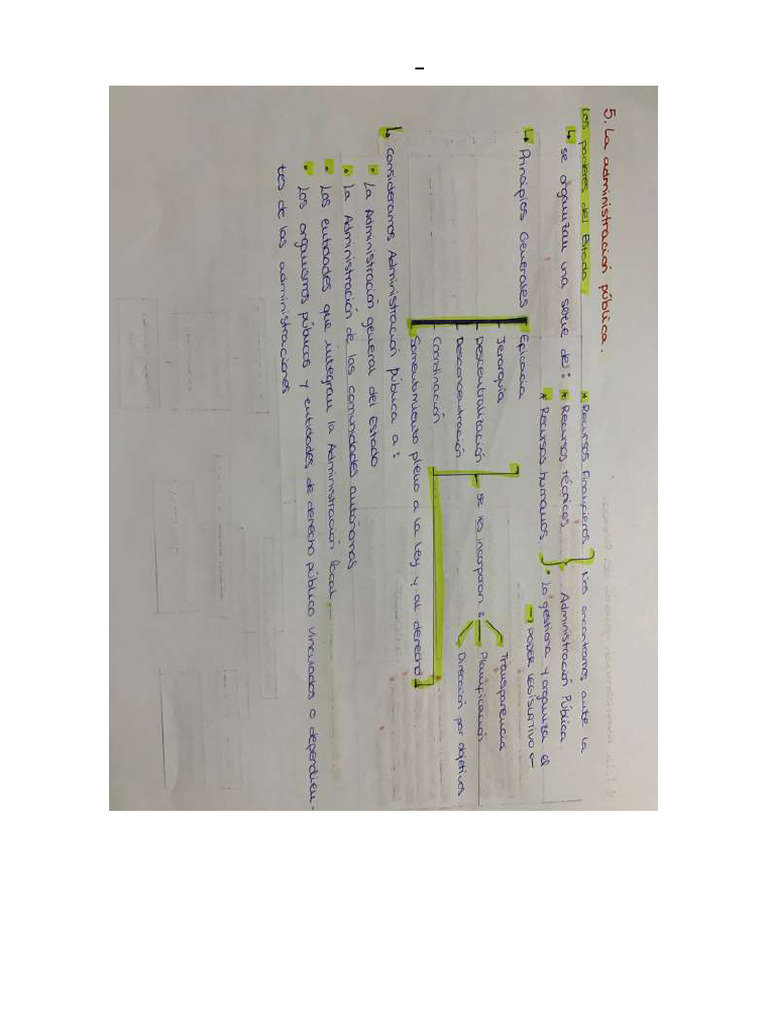 5. La administración pública.
Los poderes del Estado
↳ se organizan una serie del: * Recursos financieros
* Recursos técnicos
* Recursos humanos.
Nos encontramos ante la
Administración Pública.
• Lo gestiona y organiza el
→ PODER LEGISLATIVO ←
↳ Principios Generales
Eficacia
Jerarquía
Descentralización
Desconcentración
Coordinación
Sometimiento pleno a la Ley y al derecho
se le incorporan:
Transparencia
Planificación
Dirección por objetivos.
↳ consideramos Administración pública a:
• La Administración general del Estado
• La Administración de las comunidades autónomas
• Los entidades que integran la Administración local.
• Los organismos públicos y entidades de derecho público vinculados o dependien-
tes de las administraciones